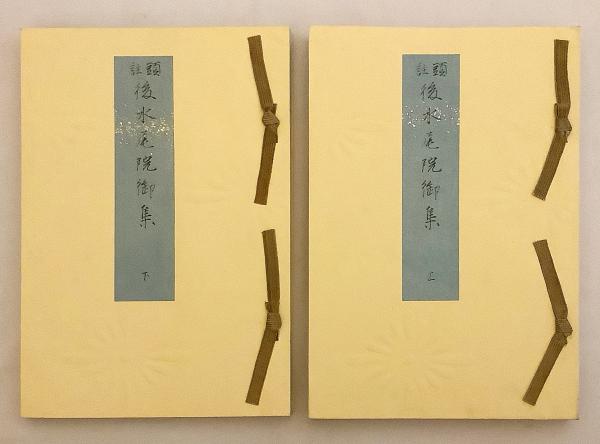 頭註
後水尾院御集
上
頭註
後水尾院御集
下